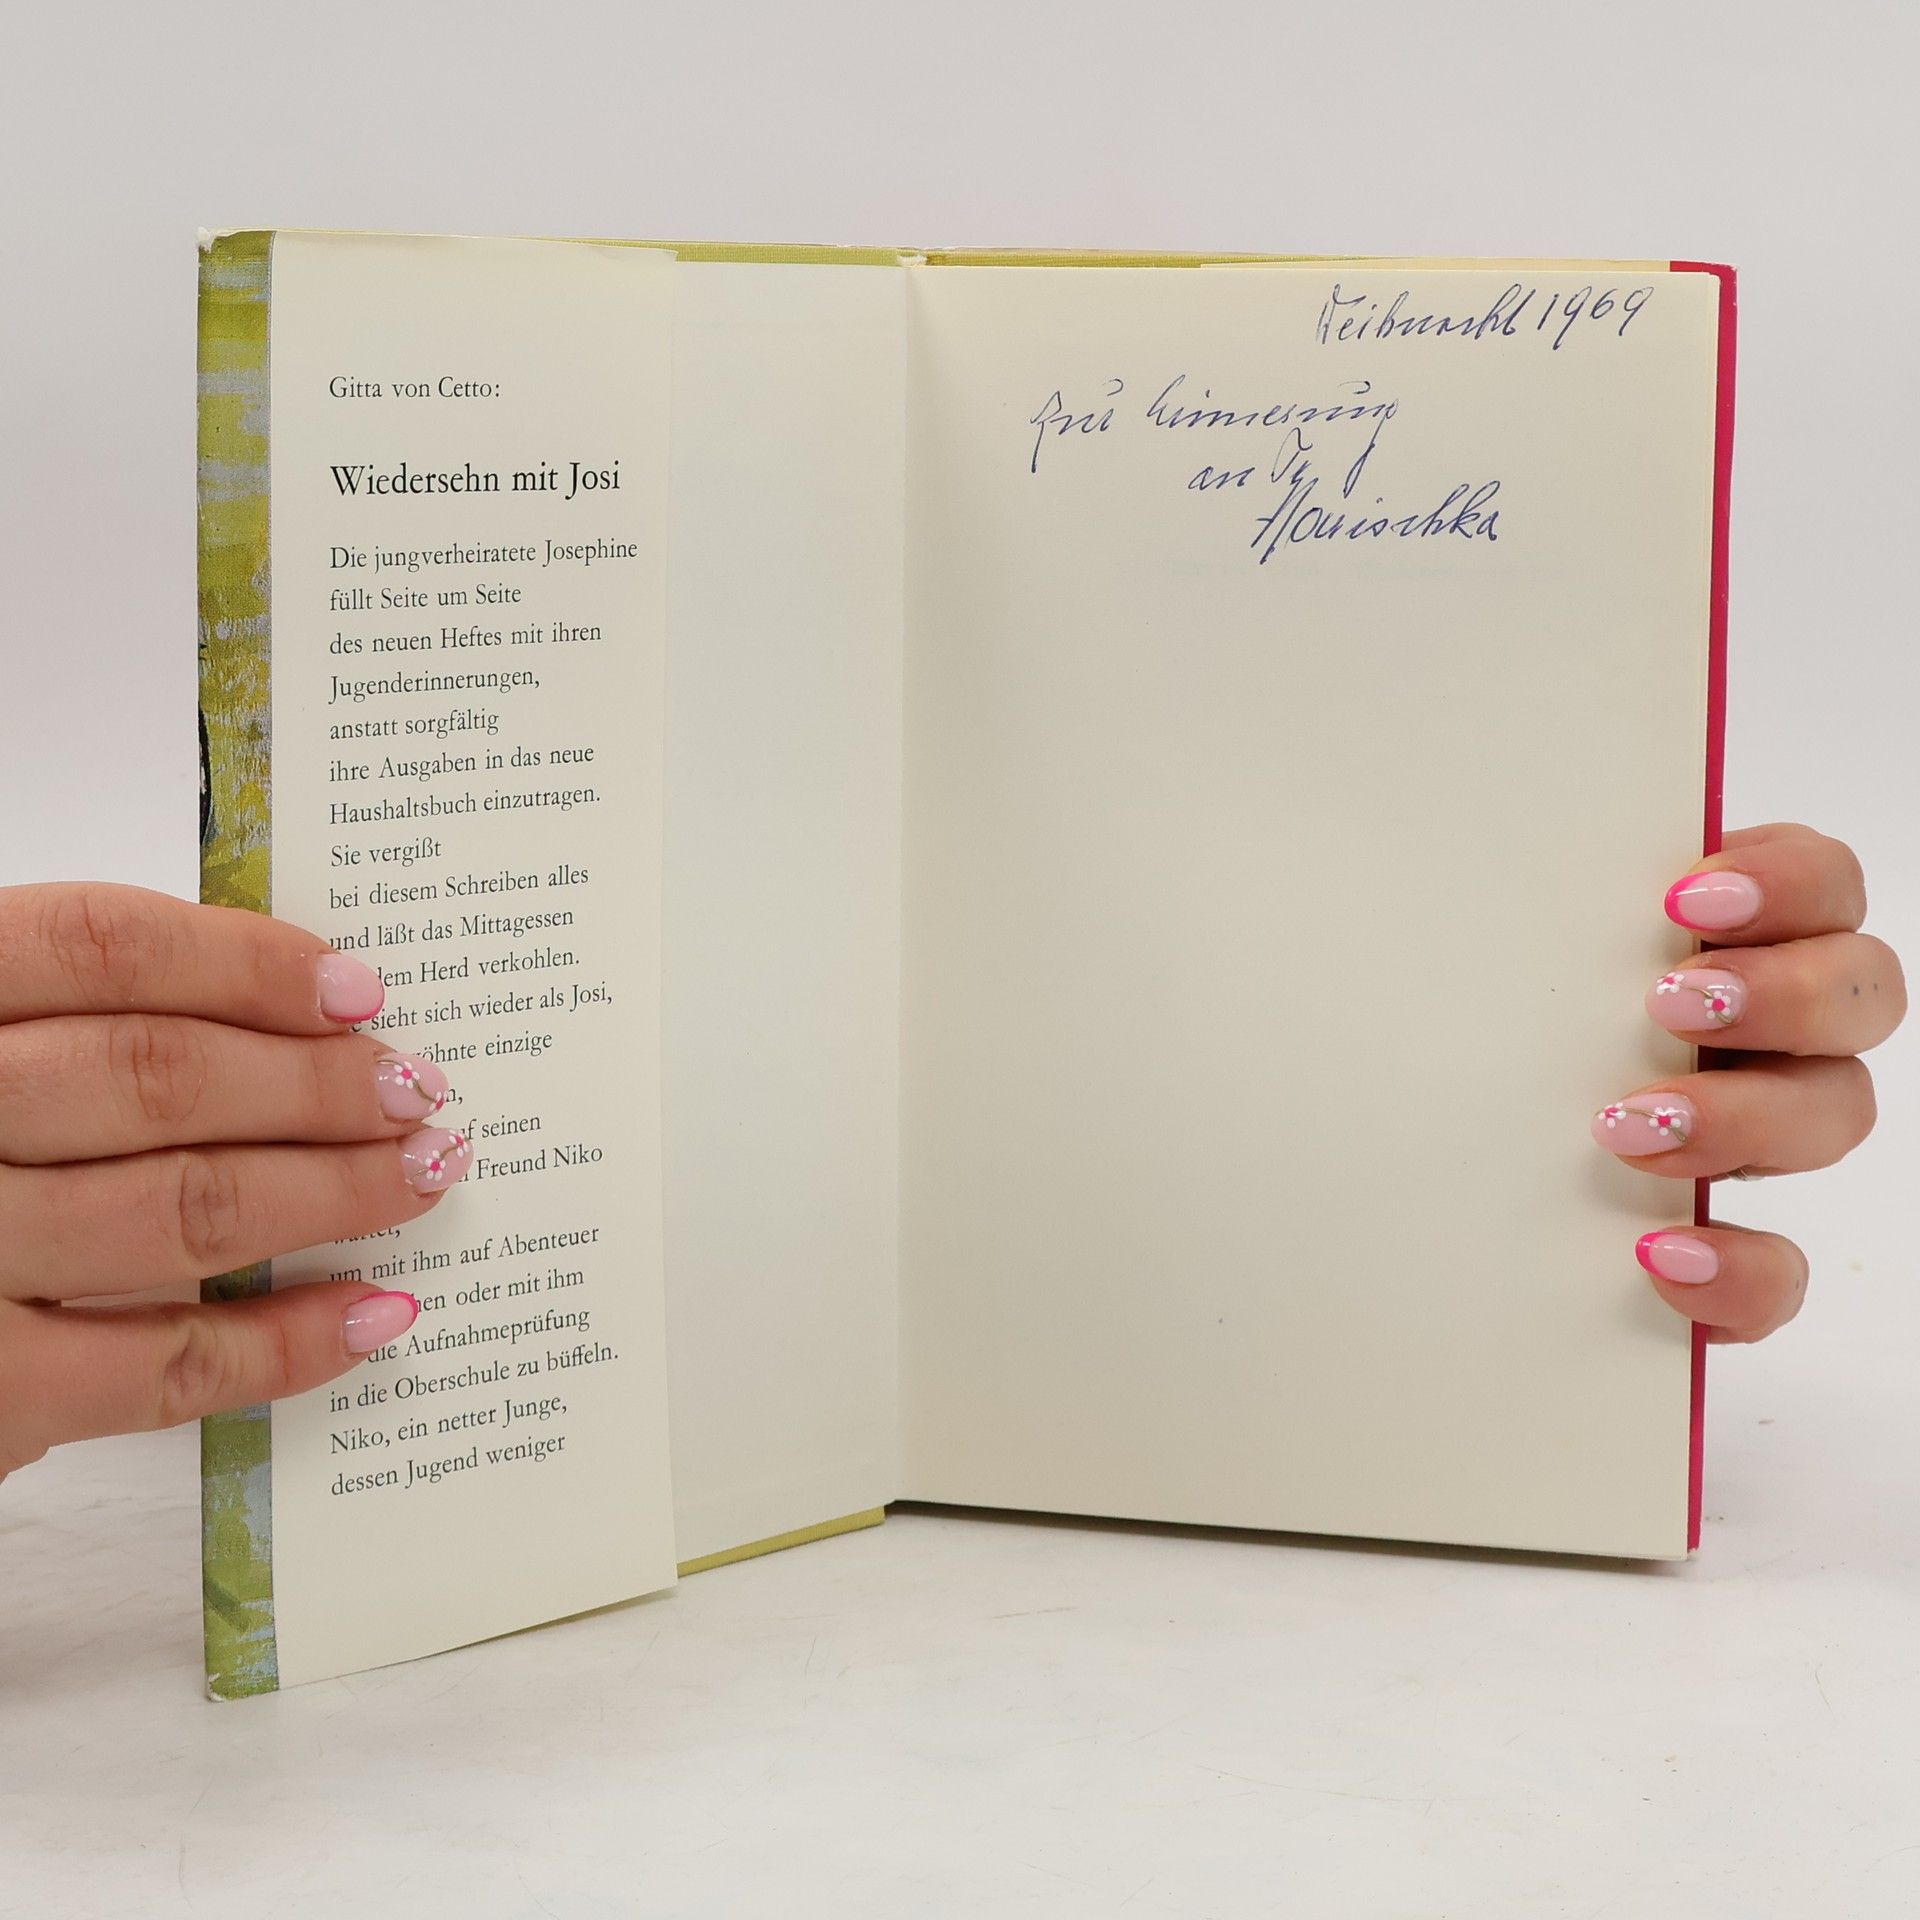 Gitta von Cetto:
Wiedersehn mit Josi
Die jungverheiratete Josephine
füllt Seite um Seite
des neuen Heftes mit ihren
Jugenderinnerungen,
anstatt sorgfältig
ihre Ausgaben in das neue
Haushaltsbuch einzutragen.
Sie vergißt
bei diesem Schreiben alles
und läßt das Mittagessen
dem Herd verkohlen.
sieht sich wieder als Josi,
einzige
seinen
Freund Niko
um mit ihm auf Abenteuer
oder mit ihm
die Aufnahmeprüfung
in die Oberschule zu büffeln.
Niko, ein netter Junge,
dessen Jugend weniger
Weihnacht 1969
Zur Erinnerung
an